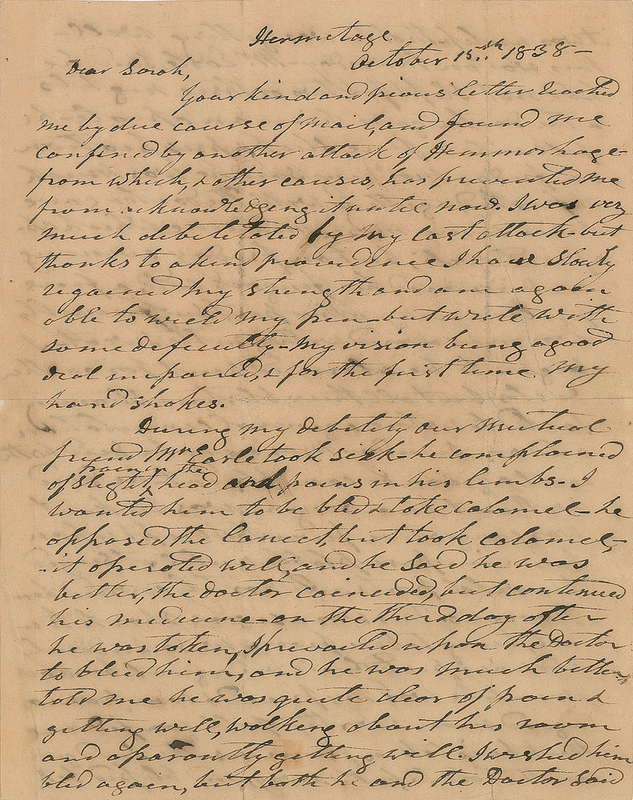 Hermitage
October 15th 1838—
Dear Sarah,
Your kind and pious letter reached
me by due course of mail, and found me
confined by another attack of Hemmorhage—
from which, & other causes, has prevented me
from acknowledging it until now. I was very
much debilitated by my last attack—but
thanks to a kind providence I have slowly
regained my strength and am again
able to wield my pen—but write with
some deficulty—my vision being a good
deal impaired, & for the first time my
hand shakes.
During my debility our mutual
friend Mr Earle took sick—he complained
of slight pain in the head and pains in his limbs—I
wanted him to be bled & take calomel—he
opposed the lancet, but took calomel,
—it operated well, and he said he was
better, the doctor coincided, but continued
his medicine—on the third day after
he was taken, I prevailed upon the Doctor
to bleed him, and he was much better,
told me he was quite clear of pain &
getting well, walking about his room
and aparantly getting well. I wished him
bled again, but both he and the Doctor said